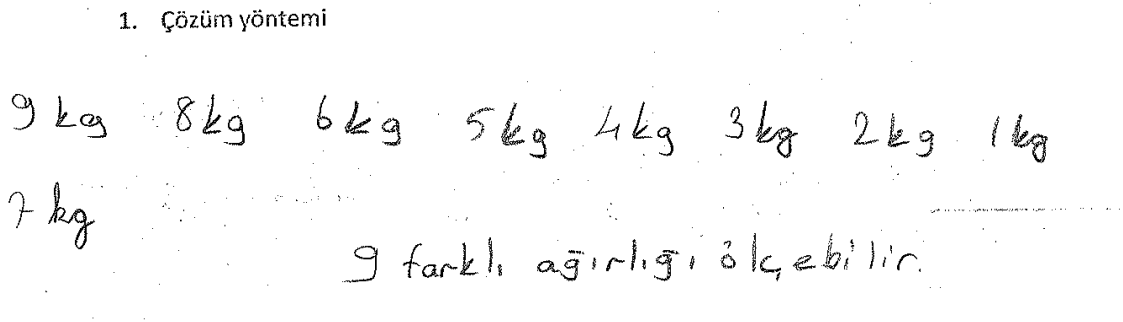 1. Çözüm yöntemi
9 kg 8 kg 6 kg 5 kg 4 kg 3 kg 2 kg 1 kg
7 kg
9 farklı ağırlığı ölçebilir.